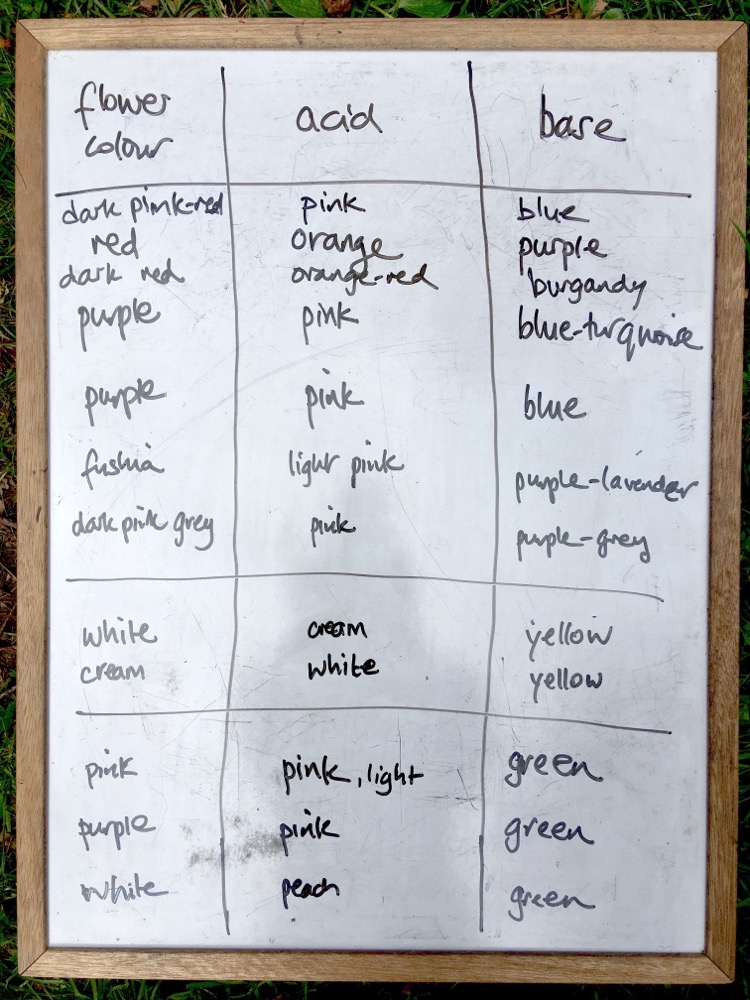 flower colour acid base
dark pink-red pink blue
red orange purple
dark red orange-red burgandy
purple pink blue-turquoise
purple pink blue
fushia light pink purple-lavender
dark pink grey pink purple-grey
white cream yellow
cream white yellow
pink pink, light green
purple pink green
white peach green